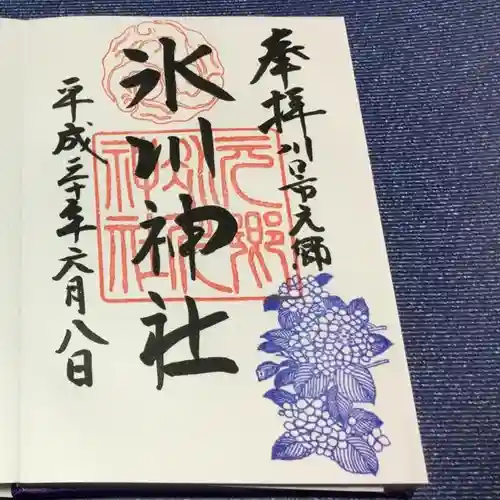 奉拝 川口市元郷
氷川神社
平成三十年六月八日
元郷氷川神社